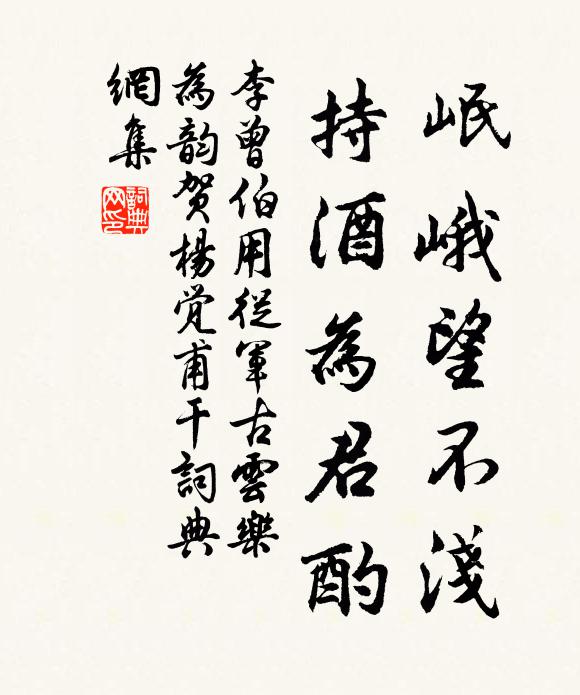 岷峨望不淺
持酒為君酌
李曾伯用從軍古雲樂
為韵贺楊覚甫干詞典
網集
詞典网印